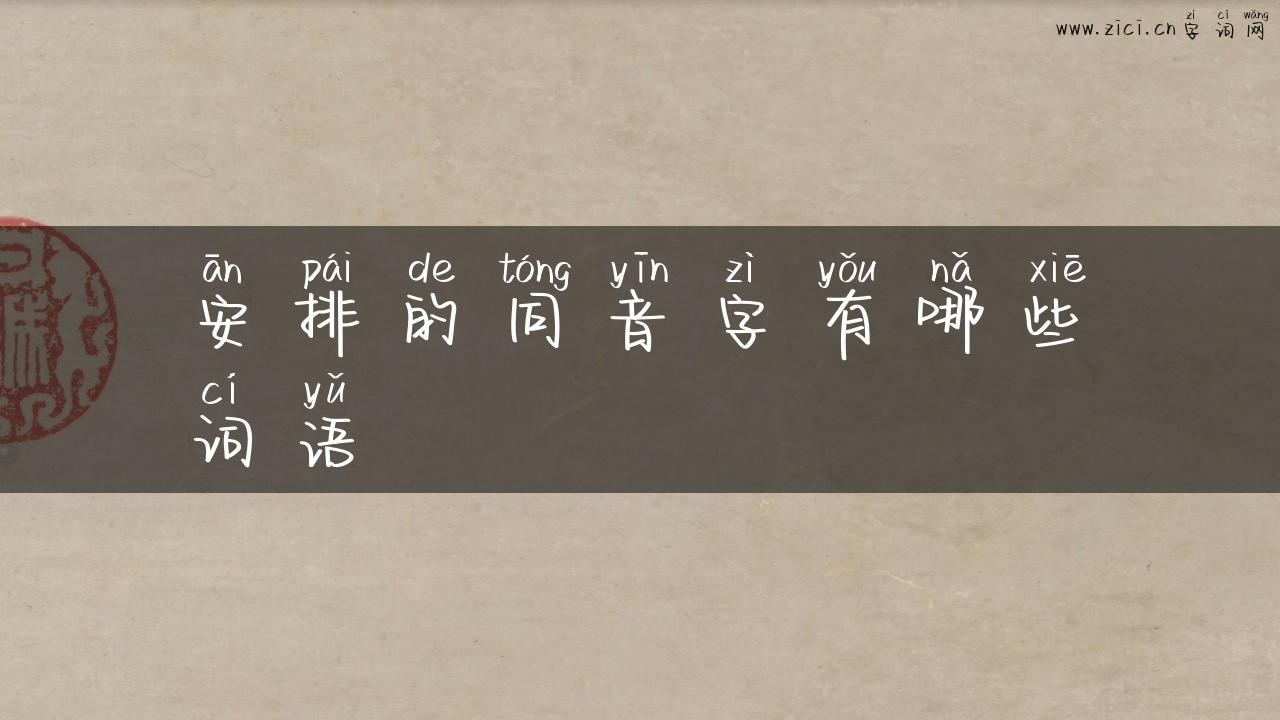 zì cí wǎng
www.zici.cn 字词网
ān pái de tóng yīn zì yǒu nǎ xiē
安排的同音字有哪些
cí yǔ
词语